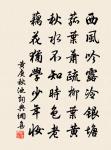 西風吟露冷銀塘
荷葉蕭疏柳葉黃
秋水不知時色老
藕花獨學少年妝
黃庚秋池詞典網書